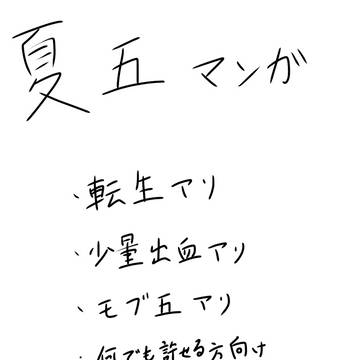 夏五 マンガ
・転生アリ
・少量出血アリ
・モブ五アリ
・何でも許せる方向け